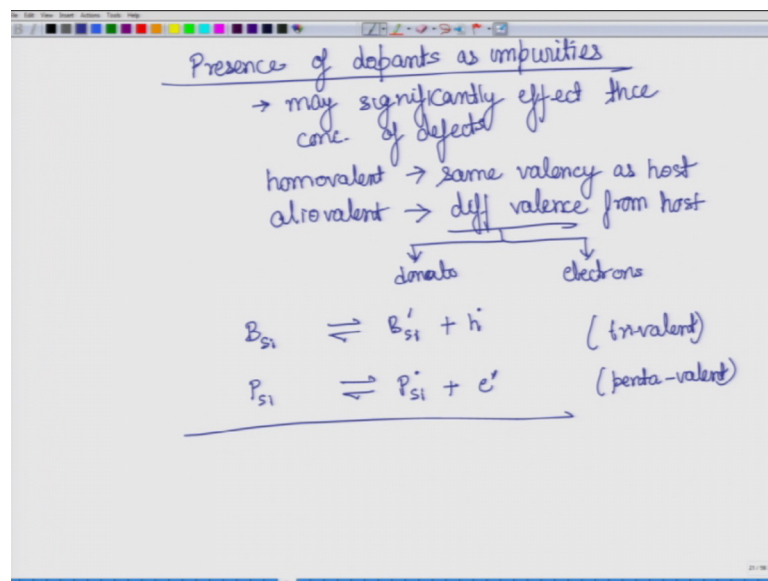 File Edit View Insert Actions Tools Help
Presence of dopants as impurities
→ may significantly effect thce
conc. of defects
homovalent → same valency as host
aliovalent → diff valence from host
donato electrons
B_Si ⇌ B_Si' + h˙ (tri-valent)
P_Si ⇌ P_Si˙ + e' (penta-valent)